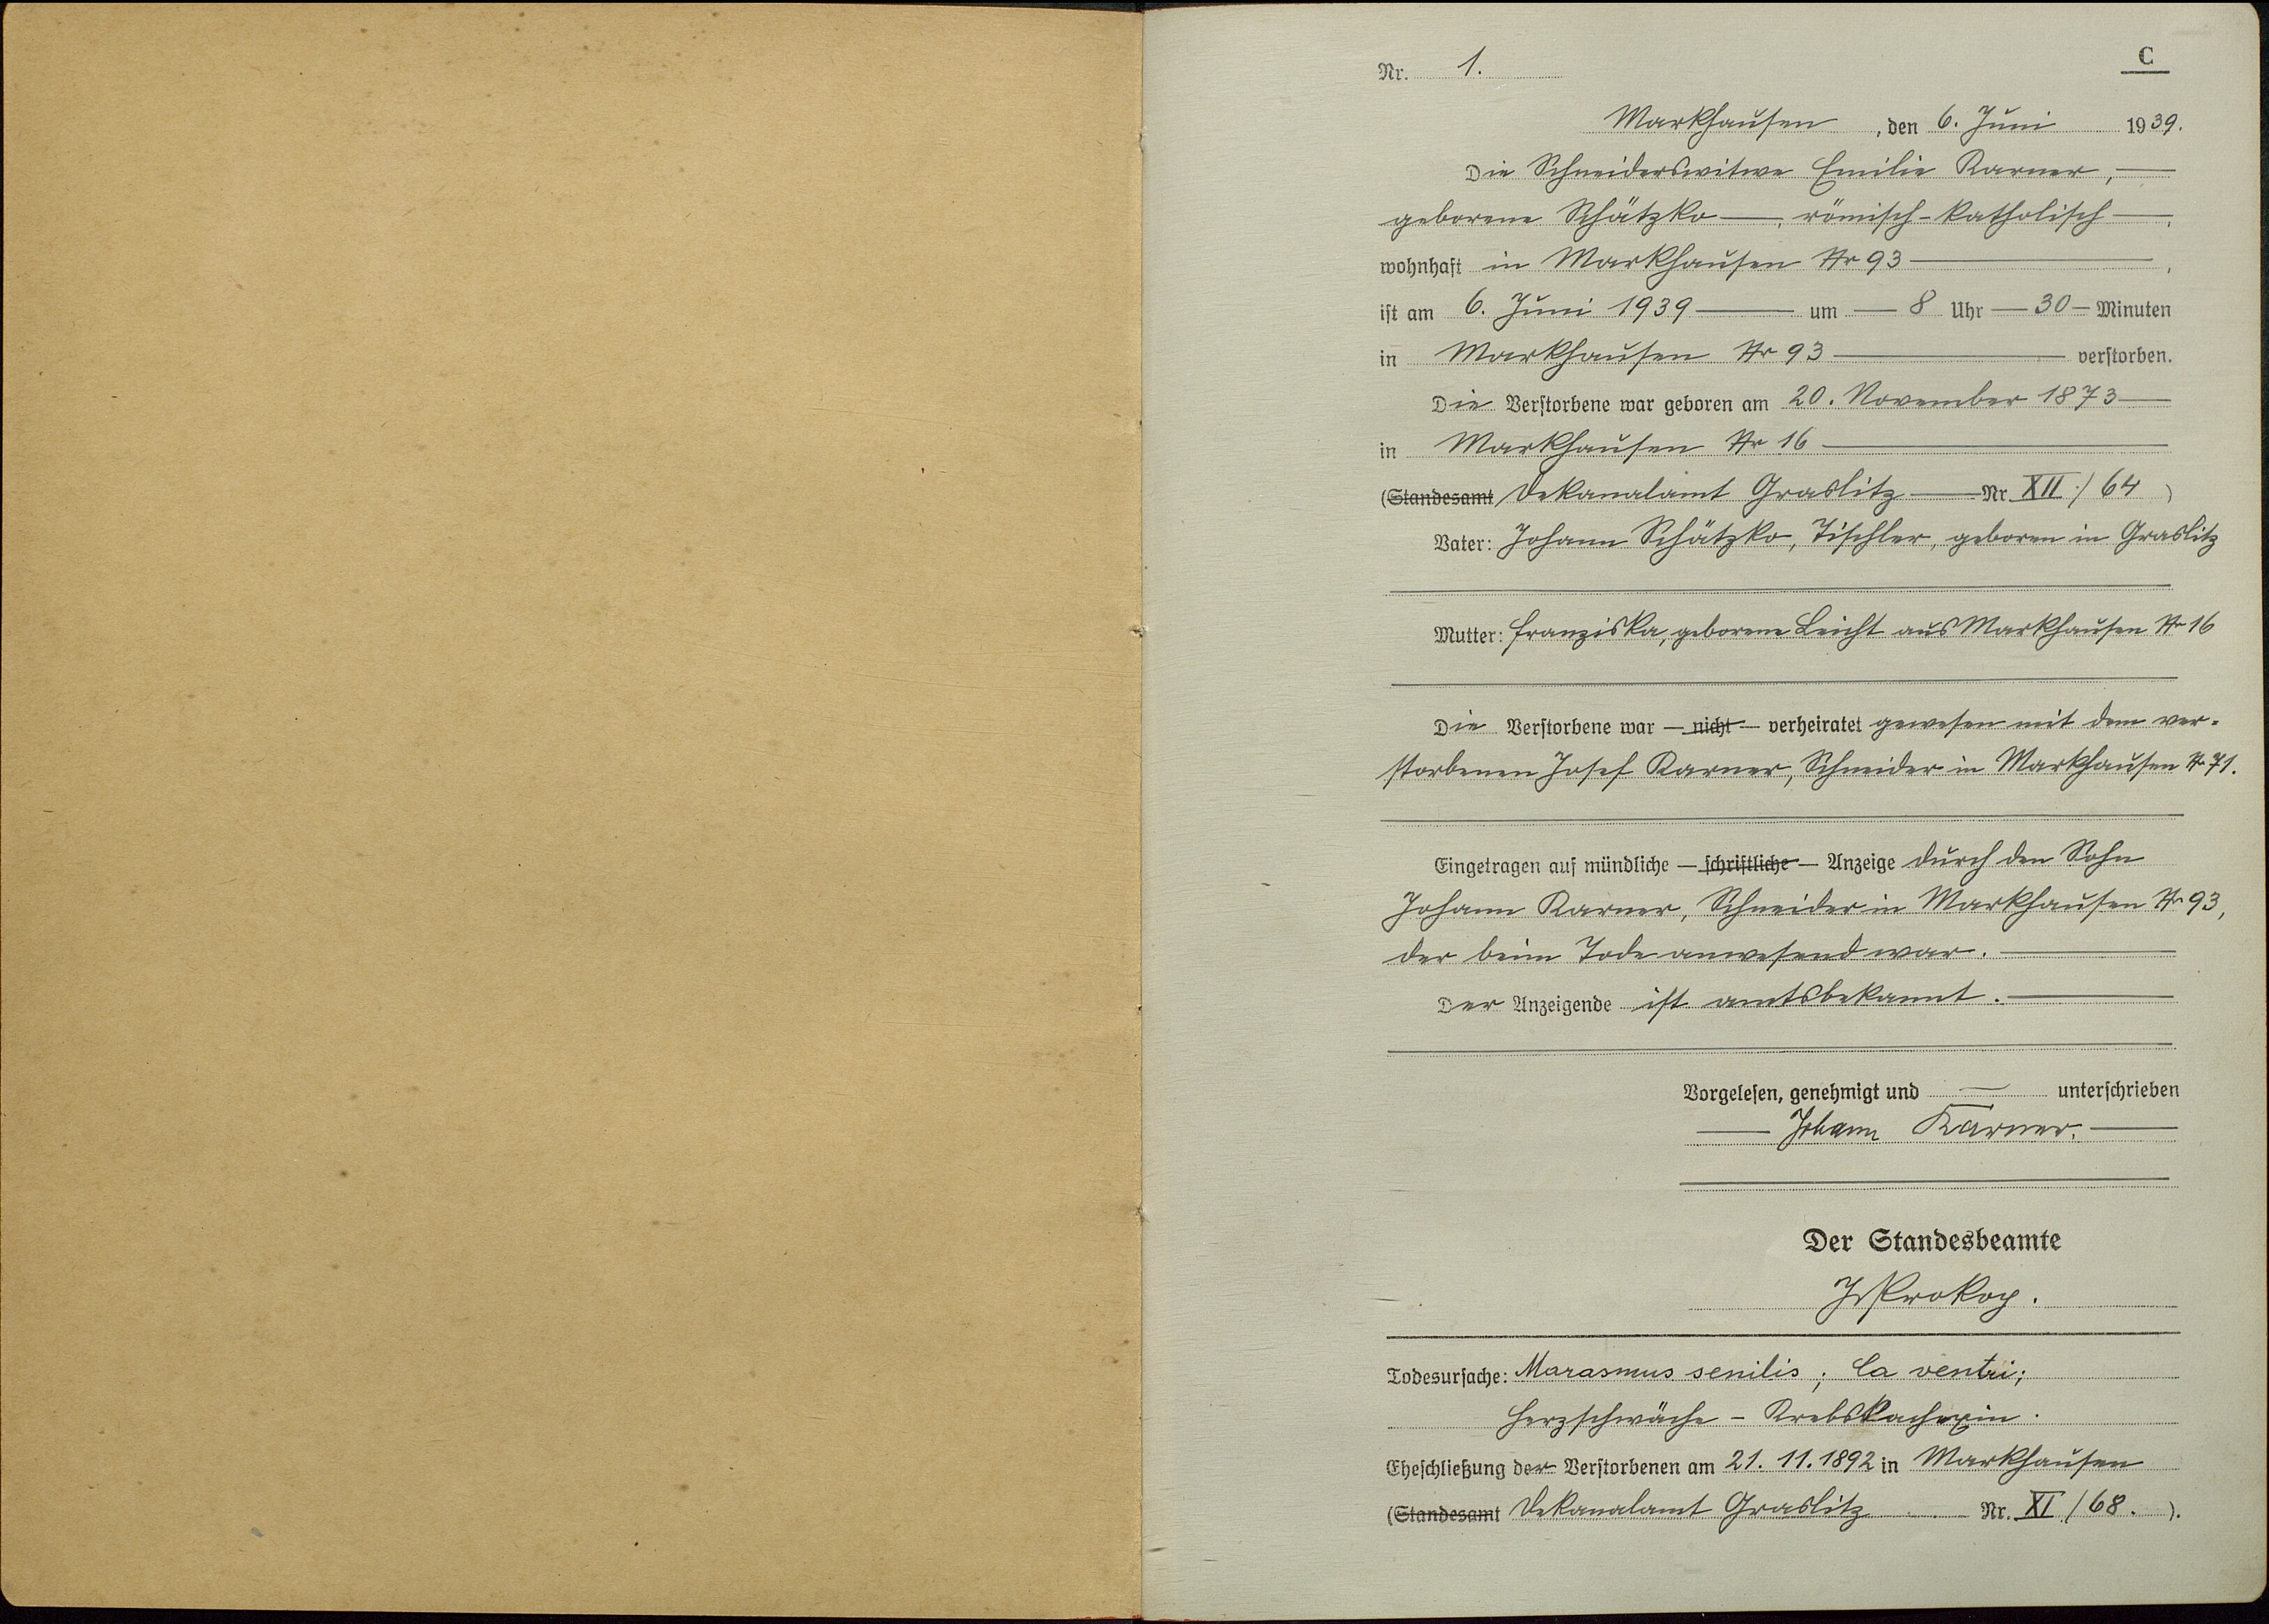 Nr. 1.
C
Markhausen, den 6. Juni 1939.
Die Schneiderswitwe Emilie Karner, —
geborene Schätzko —, römisch-katholisch —,
wohnhaft in Markhausen Nr 93 —,
ist am 6. Juni 1939 — um — 8 Uhr — 30 — Minuten
in Markhausen Nr 93 — verstorben.
Die Verstorbene war geboren am 20. November 1873 —
in Markhausen Nr 16 —
(Standesamt Dekanalamt Graslitz — Nr. XII./64)
Vater: Johann Schätzko, Tischler, geboren in Graslitz
Mutter: Franziska, geborene Leicht aus Markhausen Nr 16
Die Verstorbene war — nicht — verheiratet gewesen mit dem ver-
storbenen Josef Karner, Schneider in Markhausen Nr 71.
Eingetragen auf mündliche — schriftliche — Anzeige durch den Sohn
Johann Karner, Schneider in Markhausen Nr 93,
der beim Tode anwesend war. —
Der Anzeigende ist amtsbekannt. —
Vorgelesen, genehmigt und — unterschrieben
— Johann Karner. —
Der Standesbeamte
Prokop.
Todesursache: Marasmus senilis; Ca ventri;
Herzschwäche - Krebskachexie.
Eheschließung der Verstorbenen am 21. 11. 1892 in Markhausen
(Standesamt Dekanalamt Graslitz Nr. XI/68.).